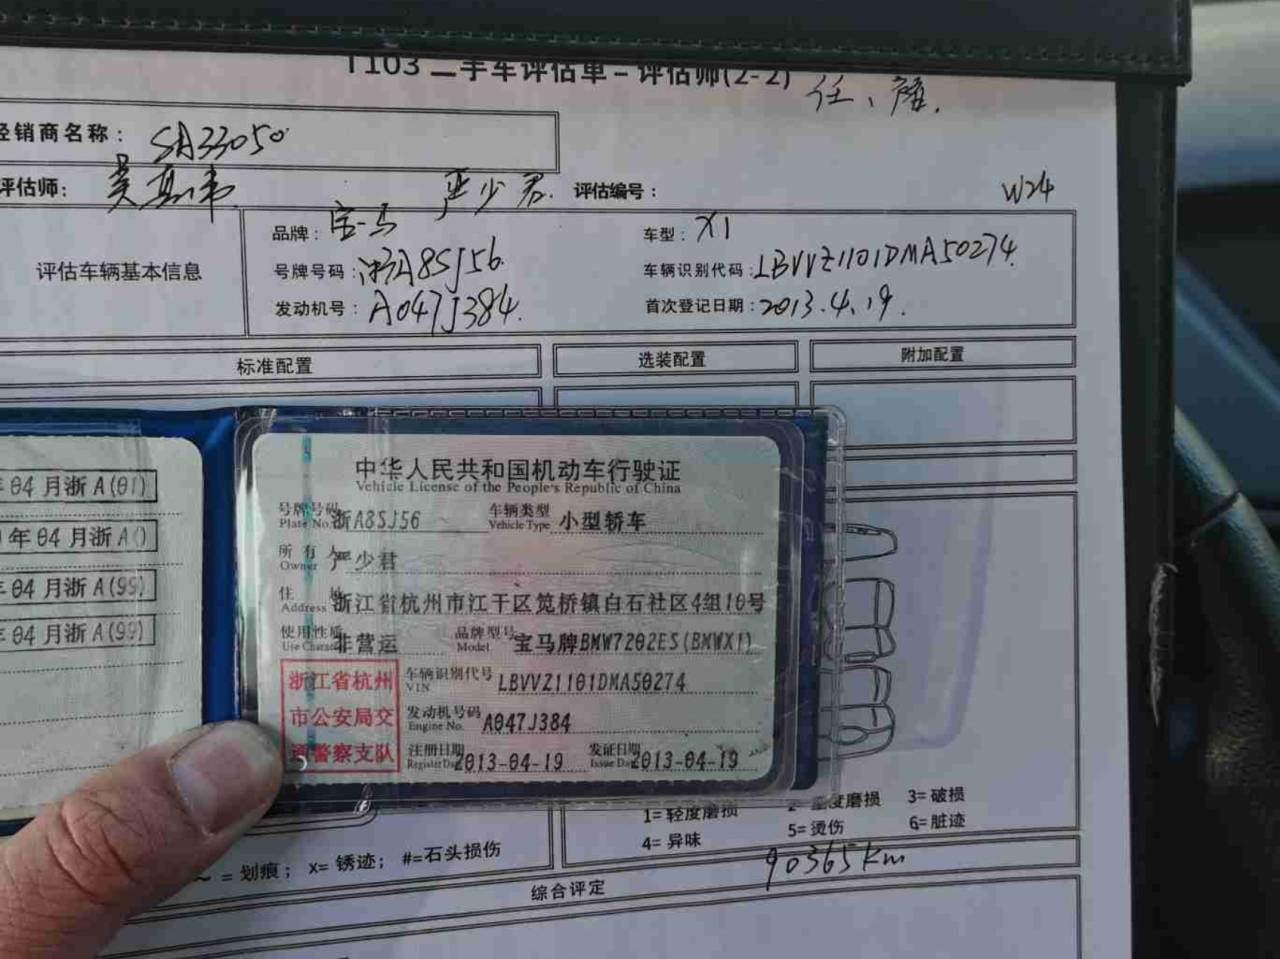 T103 二手车评估单-评估师(2-2)
经销商名称: SA33050
评估师: 严少君 评估编号:
W24
评估车辆基本信息
品牌: 宝马 车型: X1
号牌号码: 浙A8SJ56 车辆识别代码: LBVVZ1101DMA50274
发动机号: A047J384. 首次登记日期: 2013.4.19.
标准配置 选装配置 附加配置
04月浙A(01)
年04月浙A()
04月浙A(99)
年04月浙A(99)
中华人民共和国机动车行驶证
Vehicle License of the People's Republic of China
号牌号码 浙A8SJ56 车辆类型 小型轿车
Plate No. Vehicle Type
所有人 严少君
Owner
住址 浙江省杭州市江干区笕桥镇白石社区4组10号
Address
使用性质 非营运 品牌型号 宝马牌BMW7202ES(BMWX1)
Use Charac Model
浙江省杭州
市公安局交
通警察支队
车辆识别代号 LBVVZ1101DMA50274
VIN
发动机号码 A047J384
Engine No.
注册日期 2013-04-19 发证日期 2013-04-19
Register Da Issue Da
1=轻度磨损 2=重度磨损 3=破损
4=异味 5=烫伤 6=脏迹
~=划痕; x=锈迹; #=石头损伤
90365km
综合评定